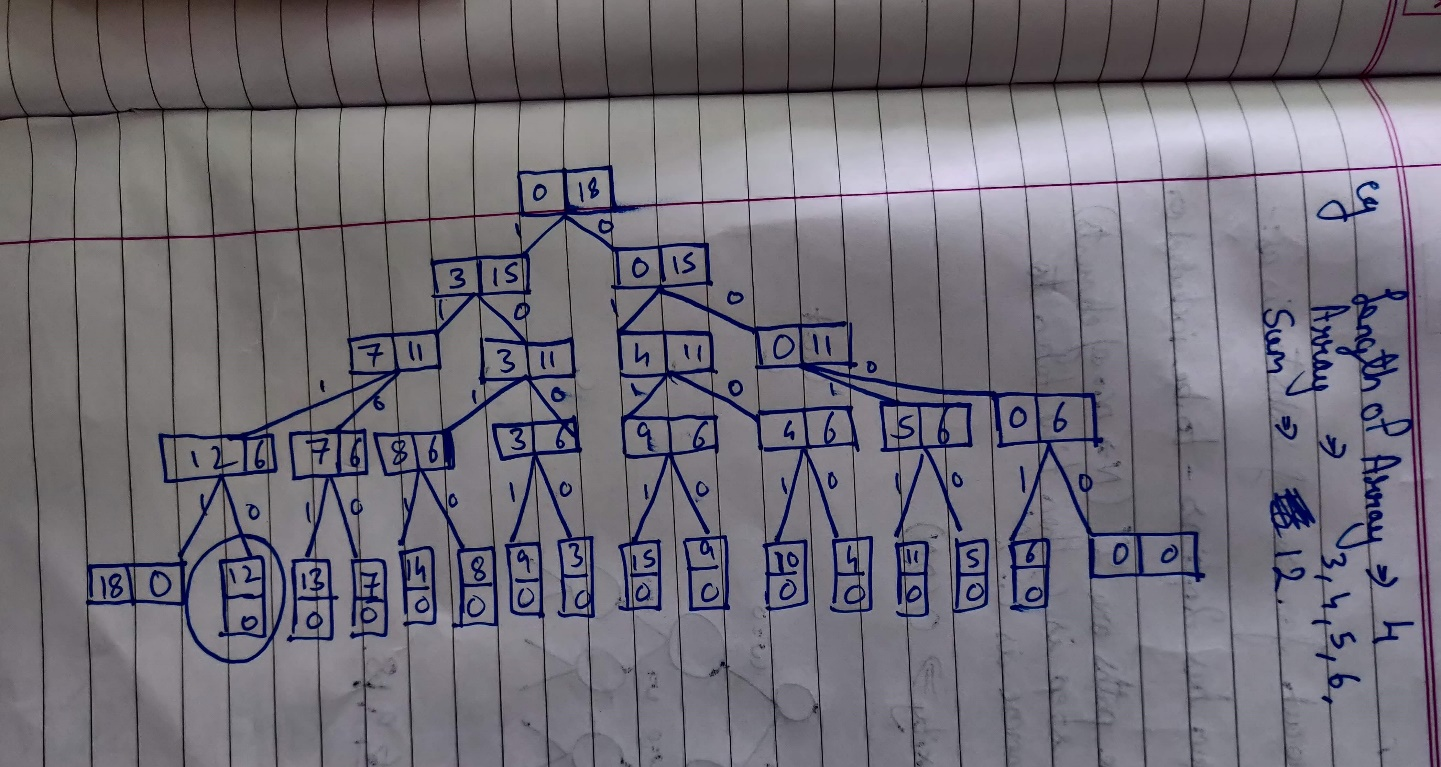 eg Length of Array ⇒ 4
Array ⇒ 3,4,5,6,
Sum ⇒ 12.
0 18
1 0
3 15 0 15
1 0 1 0
7 11 3 11 4 11 0 11
1 0 1 0 1 0 1 0
12 6 7 6 8 6 3 6 9 6 4 6 5 6 0 6
1 0 1 0 1 0 1 0 1 0 1 0 1 0 1 0
18 0 12 0 13 0 7 0 14 0 8 0 9 0 3 0 15 0 9 0 10 0 4 0 11 0 5 0 6 0 0 0